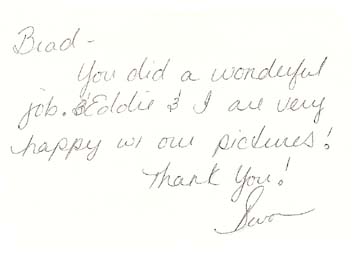 Brad -
You did a wonderful
job. Eddie & I are very
happy w/ our pictures!
Thank You!